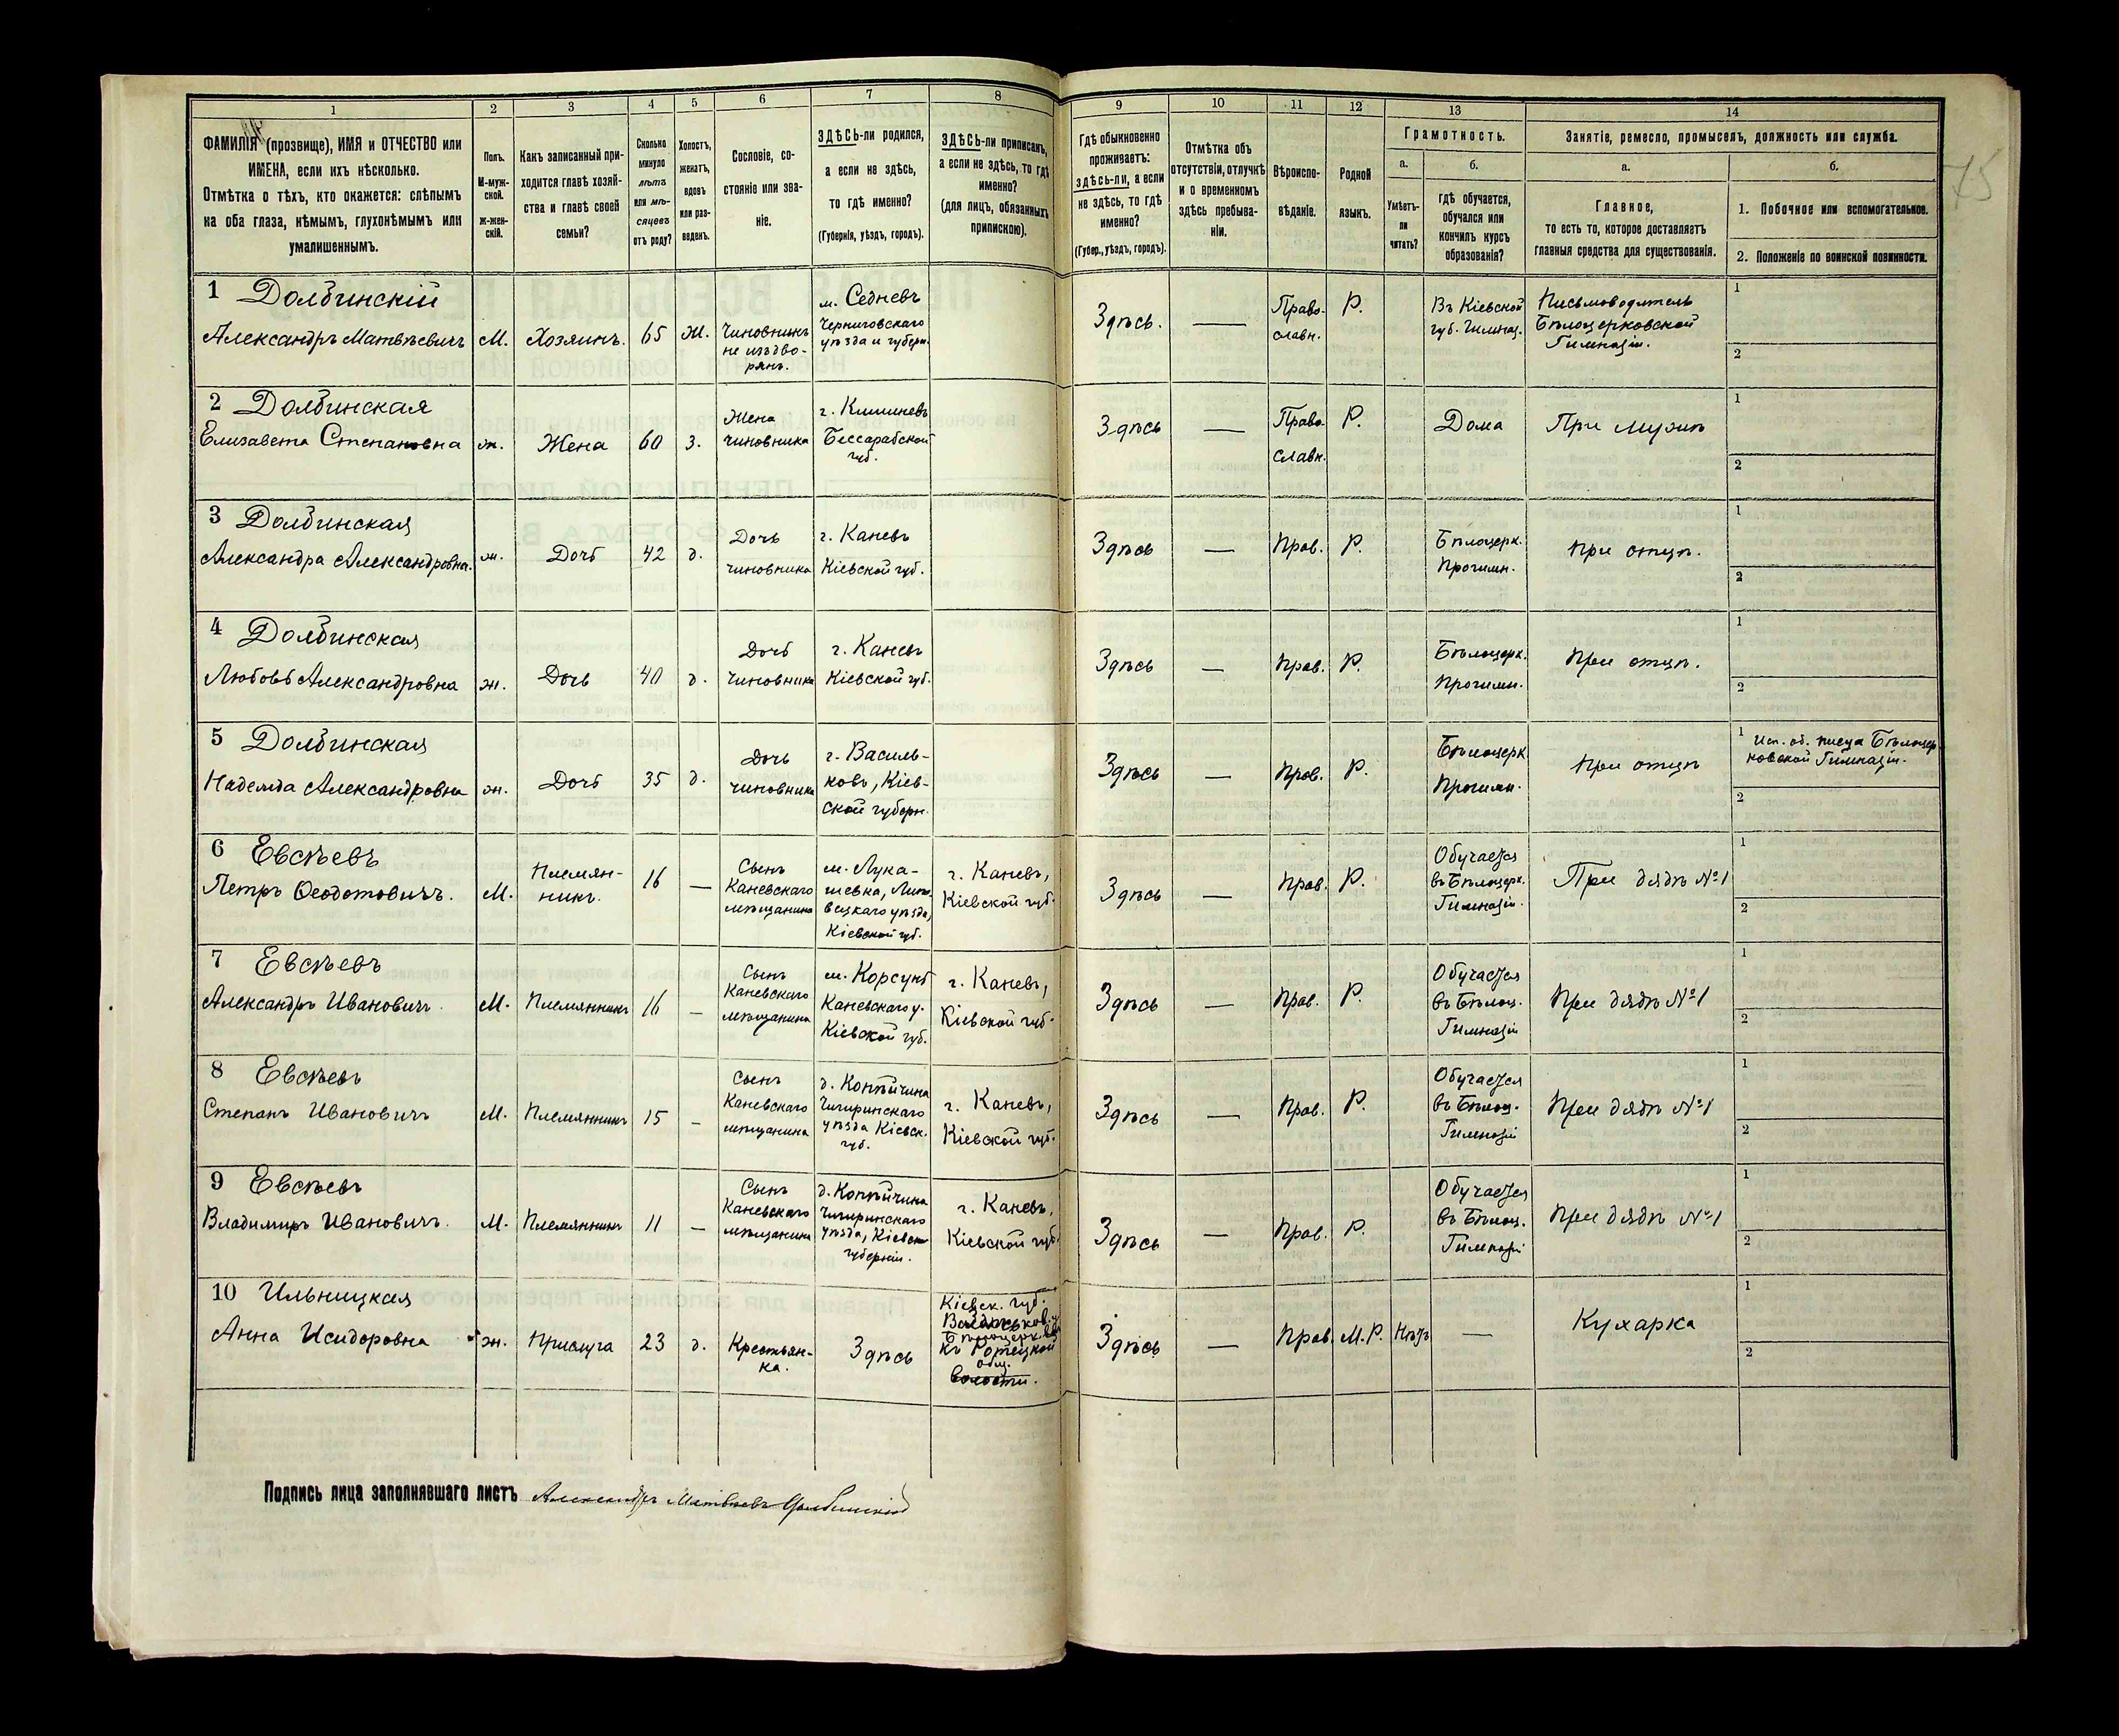 1 2 3 4 5 6 7 8 9 10 11 12 13 14
ФАМИЛІЯ (прозвище), ИМЯ и ОТЧЕСТВО или
ИМЕНА, если ихъ нѣсколько.
Отмѣтка о тѣхъ, кто окажется: слѣпымъ
на оба глаза, нѣмымъ, глухонѣмымъ или
умалишеннымъ.
Полъ.
М-муж-
ской.
Ж-жен-
скій.
Какъ записанный при-
ходится главѣ хозяй-
ства и главѣ своей
семьи?
Сколько
минуло
лѣтъ
или мѣ-
сяцевъ
отъ роду?
Холостъ,
женатъ,
вдовъ
или раз-
веденъ.
Сословіе, со-
стояніе или зва-
ніе.
ЗДѢСЬ-ли родился,
а если не здѣсь,
то гдѣ именно?
(Губернія, уѣздъ, городъ).
ЗДѢСЬ-ли приписанъ,
а если не здѣсь, то гдѣ
именно?
(для лицъ, обязанныхъ
припискою).
Гдѣ обыкновенно
проживаетъ:
здѣсь-ли, а если
не здѣсь, то гдѣ
именно?
(Губер., уѣздъ, городъ).
Отмѣтка объ
отсутствіи, отлучкѣ
и о временномъ
здѣсь пребыва-
ніи.
Вѣроиспо-
вѣданіе.
Родной
языкъ.
Грамотность.
а.
Умѣетъ-
ли
читать?
б.
гдѣ обучается,
обучался или
кончилъ курсъ
образованія?
Занятіе, ремесло, промыселъ, должность или служба.
а.
Главное,
то есть то, которое доставляетъ
главныя средства для существованія.
б.
1. Побочное или вспомогательное.
2. Положеніе по воинской повинности.
75
1 Долбинскій
Александръ Матвѣевичъ
М.
Хозяинъ.
65
Ж.
Чиновникъ
не изъ дво-
рянъ.
м. Седневъ
Черниговскаго
уѣзда и губерн.
Здѣсь.
—
Право-
славн.
Р.
Въ Кіевской
губ. Гимназ.
Письмоводитель
Бѣлоцерковской
Гимназіи.
1
2
2 Долбинская
Елизавета Степановна
ж.
Жена
60
З.
Жена
чиновника
г. Кишиневъ
Бессарабской
губ.
Здѣсь
—
Право-
славн.
Р.
Дома
При мужѣ
1
2
3 Долбинская
Александра Александровна.
ж.
Дочь
42
д.
Дочь
чиновника
г. Каневъ
Кіевской губ.
Здѣсь
—
Прав.
Р.
Бѣлоцерк.
Прогимн.
При отцѣ.
1
2
4 Долбинская
Любовь Александровна
ж.
Дочь
40
д.
Дочь
чиновника
г. Каневъ
Кіевской губ.
Здѣсь
—
Прав.
Р.
Бѣлоцерк.
Прогимн.
При отцѣ.
1
2
5 Долбинская
Надежда Александровна
ж.
Дочь
35
д.
Дочь
чиновника
г. Василь-
ковъ, Кіев-
ской губерн.
Здѣсь
—
Прав.
Р.
Бѣлоцерк
Прогимн.
При отцѣ
1 Исп. об. писца Бѣлоцер-
ковской Гимназіи.
2
6 Евсѣевъ
Петръ Ѳеодотовичъ.
М.
Племян-
никъ.
16
—
Сынъ
Каневскаго
мѣщанина
м. Лука-
шевка, Липо-
вецкаго уѣзда,
Кіевской губ.
г. Каневъ,
Кіевской губ.
Здѣсь
—
Прав.
Р.
Обучается
въ Бѣлоцерк.
Гимназіи.
При дядѣ №1
1
2
7 Евсѣевъ
Александръ Ивановичъ.
М.
Племянникъ
16
—
Сынъ
Каневскаго
мѣщанина
м. Корсунь
Каневскаго у.
Кіевской губ.
г. Каневъ,
Кіевской губ.
Здѣсь
—
Прав.
Р.
Обучается
въ Бѣлоц.
Гимназіи
При дядѣ №1
1
2
8 Евсѣевъ
Степанъ Ивановичъ
М.
Племянникъ
15
—
Сынъ
Каневскаго
мѣщанина
д. Копѣйчина
Чигиринскаго
уѣзда Кіевск.
губ.
г. Каневъ,
Кіевской губ.
Здѣсь
—
Прав.
Р.
Обучается
въ Бѣлоц.
Гимназіи
При дядѣ №1
1
2
9 Евсѣевъ
Владимиръ Ивановичъ.
М.
Племянникъ
11
—
Сынъ
Каневскаго
мѣщанина
д. Копѣйчина
Чигиринскаго
уѣзда, Кіевск
губерніи.
г. Каневъ,
Кіевской губ.
Здѣсь
—
Прав.
Р.
Обучается
въ Бѣлоц.
Гимназіи
При дядѣ №1
1
2
10 Ильницкая
Анна Исидоровна
ж.
Прислуга
23
д.
Крестьян-
ка.
Здѣсь
Кіевск. губ.
Васильков. у
Бѣлоцерк.
общ.
волости.
Здѣсь
—
Прав.
М.Р.
Нѣтъ
—
Кухарка
1
2
Подпись лица заполнявшаго листъ Александръ Матвѣевъ Долбинскій